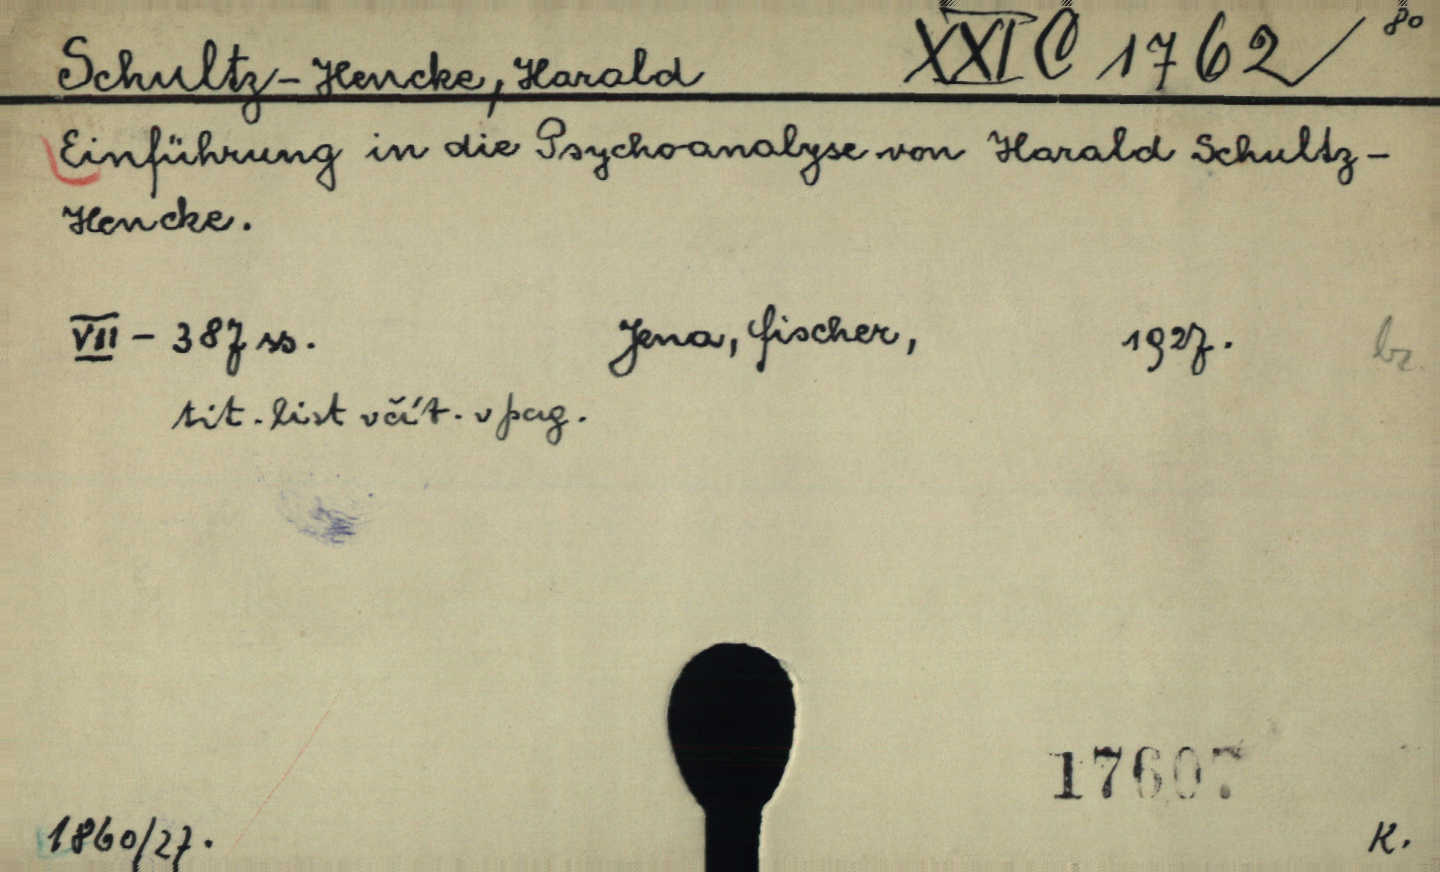 Schultz-Hencke, Harald XXI C 1762 8°
Einführung in die Psychoanalyse von Harald Schultz-
Hencke.
VII - 387 ss. Jena, Fischer, 1927.
tit. list včít. v pag.
17607
1860/27. K.